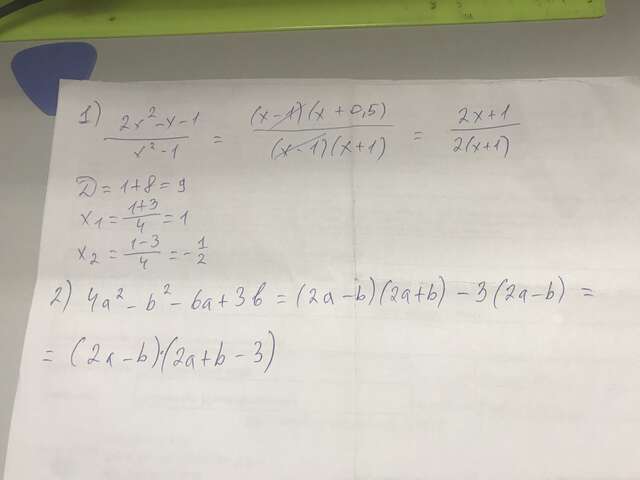 1) (2x² - x - 1)/(x² - 1) = ((x - 1)(x + 0,5))/((x - 1)(x + 1)) = (2x + 1)/(2(x + 1))
D = 1 + 8 = 9
x₁ = (1 + 3)/4 = 1
x₂ = (1 - 3)/4 = - 1/2
2) 4a² - b² - 6a + 3b = (2a - b)(2a + b) - 3(2a - b) =
= (2a - b)·(2a + b - 3)